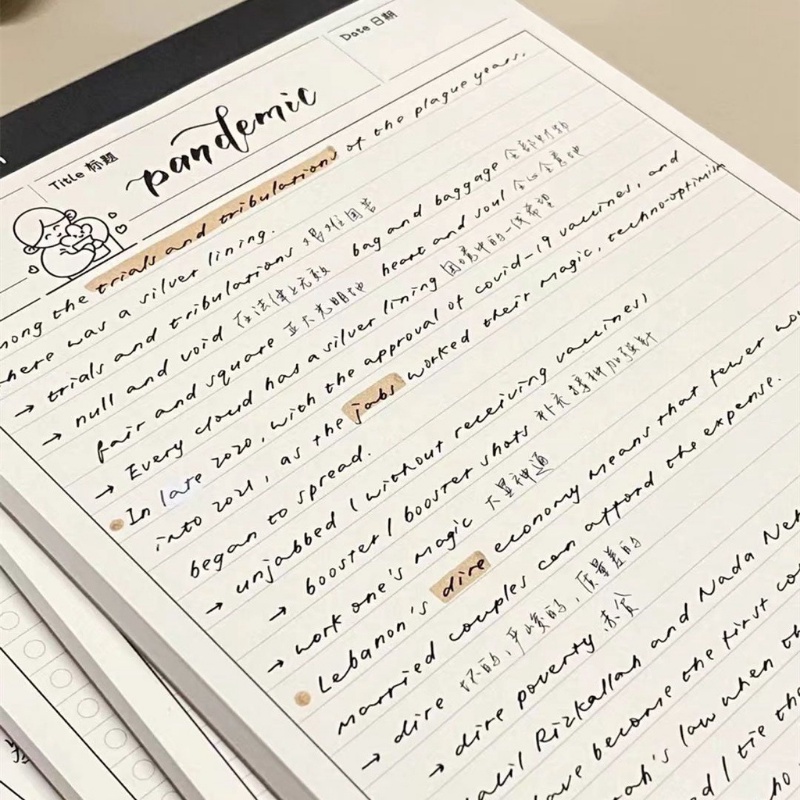 Title 标题
Date 日期
pandemic
mong the trials and tribulations of the plague years,
here was a silver lining.
→ trials and tribulations 艰难困苦
→ null and void 在法律上无效 bag and baggage
fair and square 正大光明地 heart and soul 全心全意地
→ Every cloud has a silver lining 困境中的一线希望
In late 2020, with the approval of covid-19 vaccines, and
into 2021, as the jabs worked their magic, techno-optimism
began to spread.
→ unjabbed (without receiving vaccines)
→ booster / booster shots 补充接种加强针
→ work one's magic 大显神通
Lebanon's dire economy means that fewer
married couples can afford the expense.
→ dire 坏的,严峻的,质量差的
→ dire poverty 赤贫
Rizkallah and Nada
have become the first
law when
I tie